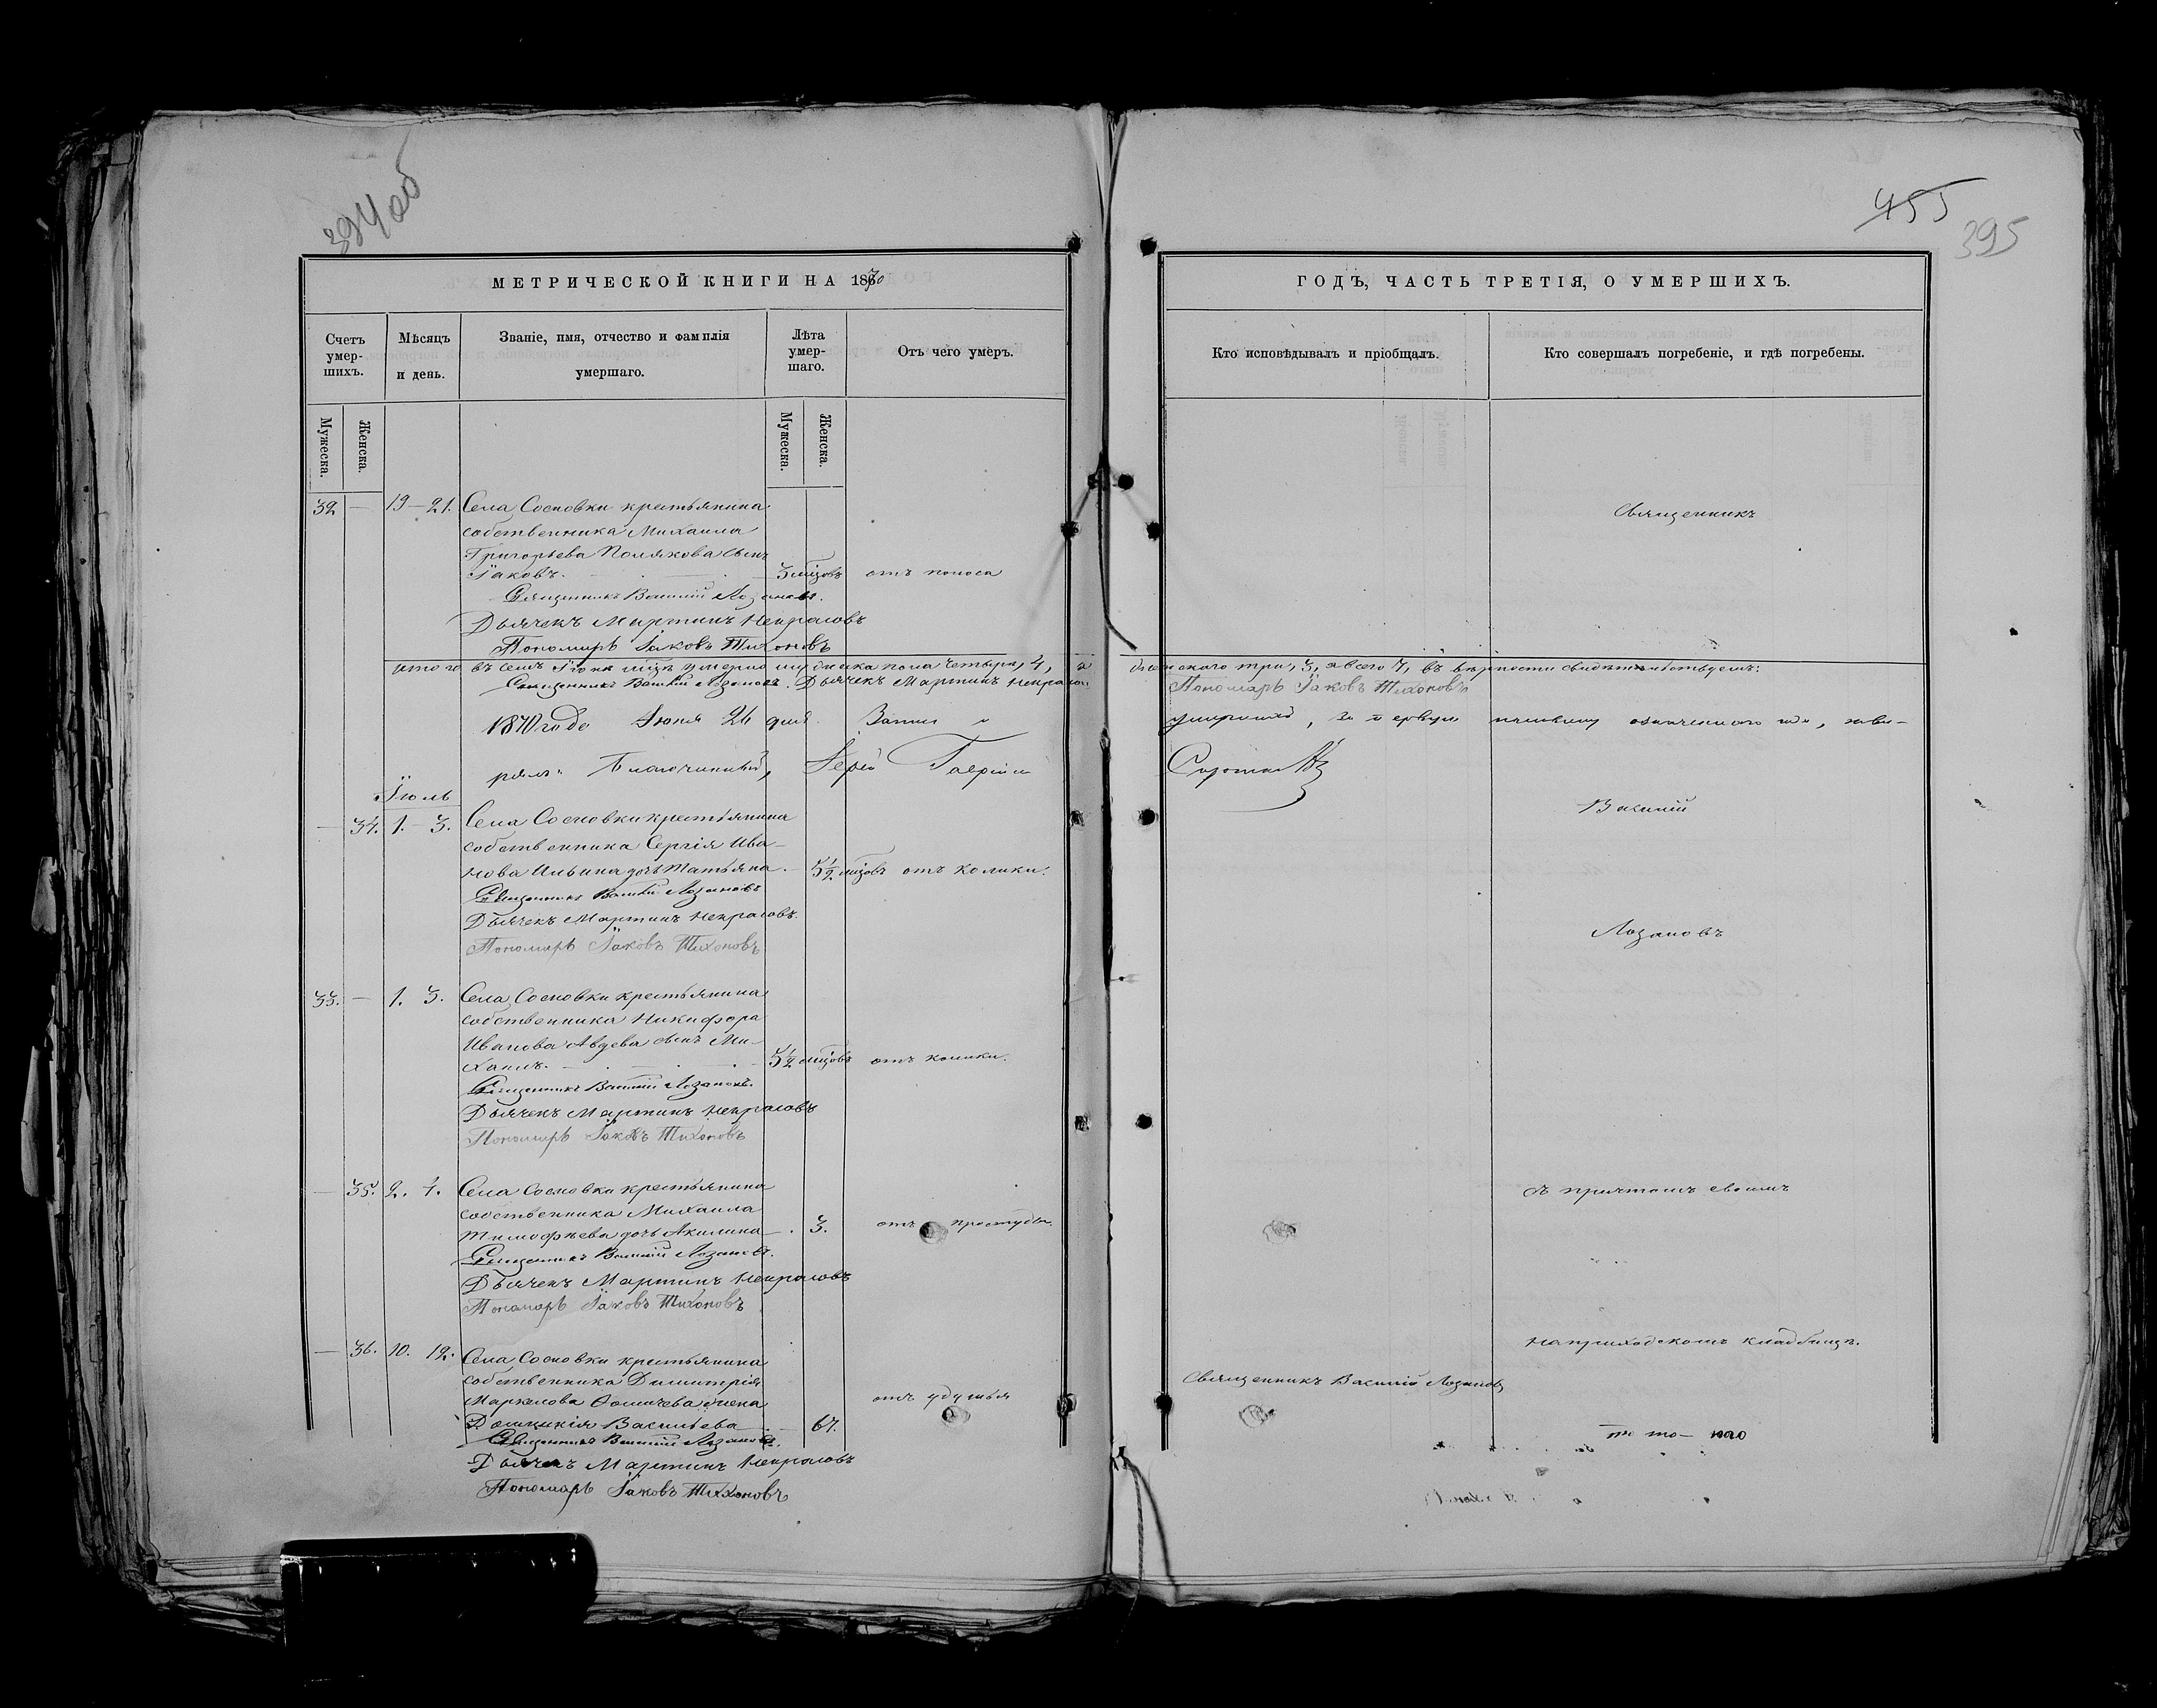 394 об
455
395
МЕТРИЧЕСКОЙ КНИГИ НА 1870
Счетъ умер-шихъ.
Мѣсяцъ и день.
Званіе, имя, отчество и фамилія умершаго.
Лѣта умер-шаго.
Отъ чего умеръ.
Мужеска.
Женска.
Мужеска.
Женска.
32 — 19–21. Села Сосновки крестьянина
собственника Михаила
Григорьева Полякова сынъ
Іаковъ. 3 мцовъ отъ поноса
Священникъ Василій Лозановъ.
Дьячекъ Мартинъ Некрасовъ
Пономарь Іаковъ Тихоновъ
Итого въ семъ Іюнѣ мцѣ умерло мужеска пола четыре, 4, а
Священникъ Василій Лозановъ. Дьячекъ Мартинъ Некрасовъ
1870 года Іюня 26 дня. Запись о
рялъ: Благочинный, Іерей Гавріилъ
Іюль
— 34. 1. – 3. Села Сосновки крестьянина
собственника Сергія Ива-
нова Ильина дочь Татьяна. 5½ мцовъ отъ колики.
Священникъ Василій Лозановъ
Дьячекъ Мартинъ Некрасовъ.
Пономарь Іаковъ Тихоновъ
33. — 1. 3. Села Сосновки крестьянина
собственника Никифора
Иванова Авдева сынъ Ми-
хаилъ. 5½ мцовъ отъ колики.
Священникъ Василій Лозановъ.
Дьячекъ Мартинъ Некрасовъ
Пономарь Іаковъ Тихоновъ
— 35. 2. 4. Села Сосновки крестьянина
собственника Михаила
Тимофѣева дочь Акилина — 3. отъ простуды.
Священникъ Василій Лозановъ.
Дьячекъ Мартинъ Некрасовъ
Пономарь Іаковъ Тихоновъ
— 36. 10. 12. Села Сосновки крестьянина
собственника Димитрія
Маркелова Ѳомичева жена отъ удушья
Домникія Васильева — 67.
Священникъ Василій Лозановъ.
Дьячекъ Мартинъ Некрасовъ
Пономарь Іаковъ Тихоновъ
ГОДЪ, ЧАСТЬ ТРЕТІЯ, О УМЕРШИХЪ.
Кто исповѣдывалъ и пріобщалъ.
Кто совершалъ погребеніе, и гдѣ погребены.
Священникъ
женскаго три, 3, а всего 7, въ вѣрности свидѣтельствуемъ:
Пономарь Іаковъ Тихоновъ
умершихъ, за первую половину означеннаго года, свѣ-
Василій
Лозановъ
съ причтомъ своимъ
на приходскомъ кладбищѣ.
Священникъ Василій Лозановъ